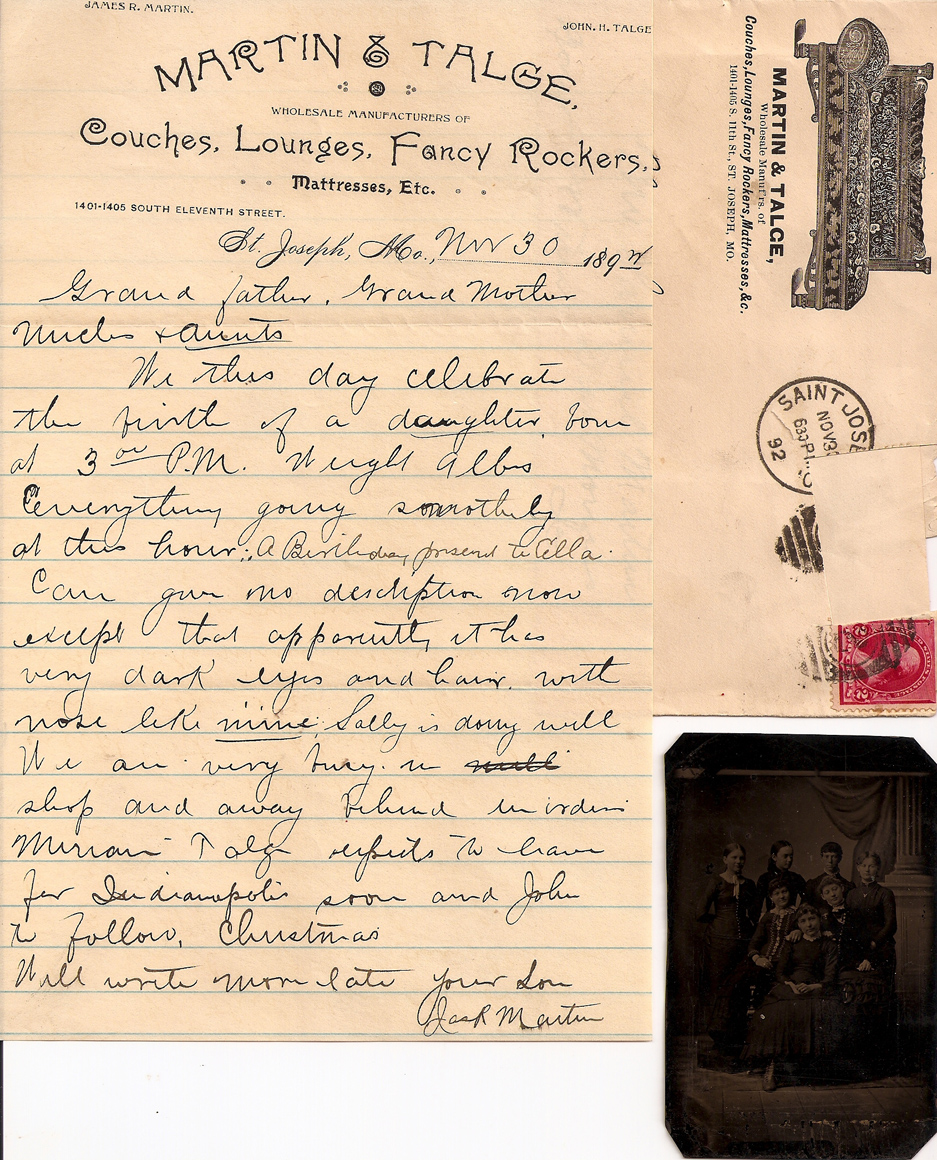 JAMES R. MARTIN.
JOHN. H. TALGE
MARTIN & TALGE,
WHOLESALE MANUFACTURERS OF
Couches, Lounges, Fancy Rockers,
Mattresses, Etc.
1401-1405 SOUTH ELEVENTH STREET.
St. Joseph, Mo., Nov 30 1892
Grand father, Grand Mother
Uncles & aunts
We this day celebrate
the birth of a daughter, born
at 3 00 P.M. Weight 9 lbs
Everything going
at this hour; A Birthday present to Ella.
Can give no description now
except that apparently it has
very dark eyes and hair, with
nose like mine; Sally is doing well
We are very busy in
shop and away behind in orders
Miriam Talge expects to leave
for Indianapolis soon and John
to follow, Christmas
Will write more late your Son
Jas R Martin
MARTIN & TALGE,
Wholesale Manuf'rs. of
Couches, Lounges, Fancy Rockers, Mattresses, &c.
1401-1405 S. 11th St., ST. JOSEPH, MO.
SAINT JOSE
NOV 30
630 P
92